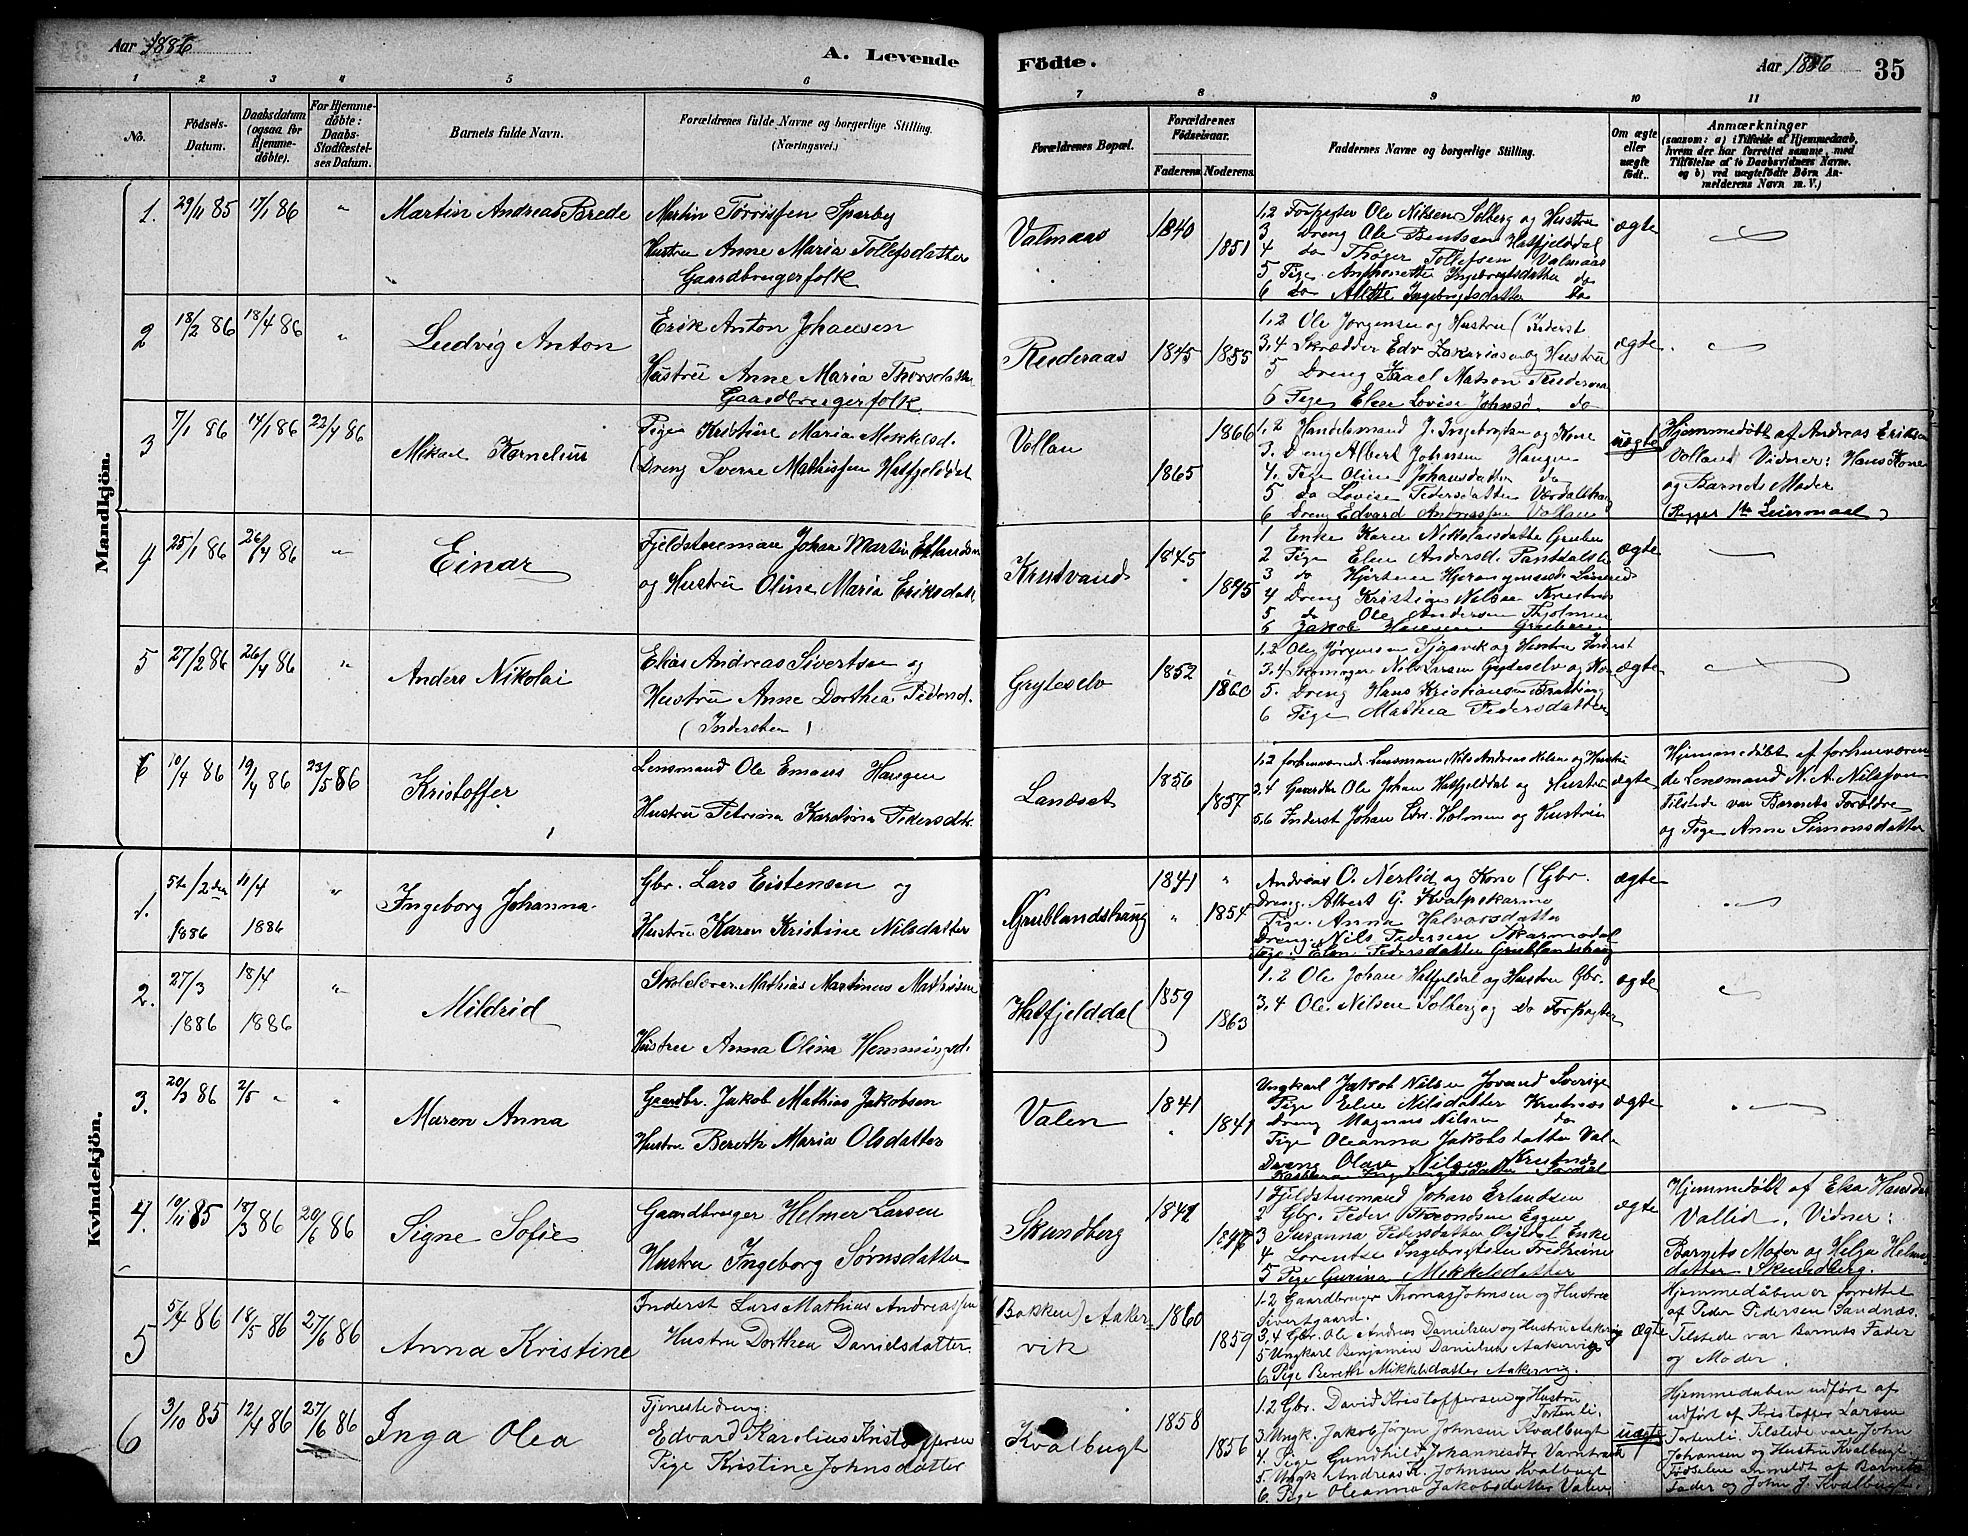 Aar 1886
A. Levende
Födte.
Aar 1886
35
1 2 3 4 5 6 7 8 9 10 11
No.
Födsels-
Datum.
Daabsdatum
(ogsaa for
Hjemme-
döbte).
For Hjemme-
döbte:
Daabs-
Stadfæstel-
ses Datum.
Barnets fulde Navn.
Forældrenes fulde Navne og borgerlige Stilling.
(Næringsvei.)
Forældrenes Bopæl.
Forældrenes
Födselsaar.
Faderens. Moderens.
Faddernes Navne og borgerlige Stilling.
Om ægte
eller
uægte
födt.
Anmærkninger
(saasom: a) i Tilfælde af Hjemmedaab,
hvem der har forrettet samme, med
Tilföielse af to Daabsvidners Navne.
og b) ved uægtefödte Börn An-
melderens Navn m. V.)
Mandkjön.
1. 29/11 85 17/1 86 " Martin Andreas Brede
Martin Törrissen Sparby
Hustru Anne Maria Tollefsdatter
Gaardbrugerfolk
Valmaas 1840 1851
1,2 Forpagter Ole Nilsen Solberg og Hustru
3 Dreng Ole Bentsen Hatfjelddal
4 do Thöger Tollefsen Valmaas
5 Pige Anthonette Ingebrigtsdatter do
6 do Alette Ingebrigtsdatter do
ægte
2 18/2 86 18/4 86 " Ludvig Anton
Erik Anton Johansen
Hustru Anne Maria
Gaardbrugerfolk
Ruderaas 1845 1855
1,2 Ole Jörgensen og Hustru (Inderst
3,4 Skrædder Edv Zakariasen og Hustru
5 Dreng Israel Matson
6 Pige Elen Lovise do
ægte
3 7/1 86 14/1 86 22/4 86 Mikael Kornelius
Pige Kristine Maria Mikkelsd.
(Dreng Sverre Mathissen Hatfjelddal
Vollan 1866 1865
1,2 Handelsmand J. Ingebrigtsen og Kone
3. Dreng Albert Johnsen Haugen
4. Pige Oline Johansdatter do
5 do Lovise Pedersdatter
6 Dreng Edvard Andreassen Vollan
uægte
Hjemmedöbt af Andreas Eriksen
Vollan Vidner: Hans Kone
og Barnets Moder
( 1ste Leiermaal )
4 25/1 86 26/4 86 " Einar
Fjeldstuemand Johan Martin Erlandsen
og Hustru Oline Maria Eriksdatt
Krutvand 1845 1845
1 Enke Karen Nikolaisdatter Gruben
2 Pige Elen Andersd.
3 do
4 Dreng Kristian Nilsen Krutnæs
5 do Ole Andersen
6 Jakob Hansen Gruben
ægte
5 27/2 86 26/4 86 " Anders Nikolai
Elias Andreas Sivertsen og
Hustru Anne Dorthea Pedersd.
(Indersten )
Gryteselv 1852 1860
1,2 Ole Jörgensen og Hustru Inderst
3,4 Nils Larsen Gryteselv og Kone
5. Dreng Hans Kristiansen
6 Pige Mathea Pedersdatter
ægte
6 10/4 86 19/4 86 23/5 86 Kristoffer
Lensmand Ole Emaus Haugen
Hustru Petrina Karolina Pedersdtr.
Landset 1856 1857
1,2 forhenværende Lensmann Nils Andreas Nilsen og Hustru
3,4 Gaardbr Ole Johan Hatfjelddal og Hustru
5,6 Inderst Johan Chr. Holmen og Hustru
ægte
Hjemmedöbt af forhenværen-
de Lensmand N. A. Nilssen
Tilstede var Barnets Forældre
og Pige Anne Simonsdatter
Kvindekjön.
1. 5te/2den 1886 11/4 1886 " Ingeborg Johanna
Gbr. Lars Eistensen og
Hustru Karen Kristine Nilsdatter
Grublandshaug 1841 " " 1854
Andreas O. Nerlid og Kone (Gbr.
Dreng. Albert G. Kvalpskarmo
Pige. Anna Halvorsdatter
Dreng. Nils Pedersen Skarmodal
Pige: Elen Pedersdatter Grublandshaug
ægte
2. 27/3 1886 18/4 1886 " Mildrid
Skolelærer Mathias Martinus Mathissen
Hustru Anna Olina Hemmingsd.
Hatfjelddal 1859 1863
1,2 Ole Johan Hatfjeldal og Hustru Gbr.
3,4 Ole Nilsen Solberg og Do Forpagter
ægte
3. 20/3 86 2/5 " " Maren Anna
Gaardbr. Jakob Mathias Jakobsen
Hustru Bereth Maria Olsdatter
Valen 1841 " 1841
Ungkarl Jakob Nilsen Jovand Sverige
Pige Elen Nilsdatter Krutnæs
Dreng Magnus Nilsen do
Pige Oleanna Jakobsdatter Valen
Dreng Olav Nilsen Krutnæs
ægte
4. 10/11 85 18/3 86 20/6 86 Signe Sofie
Gaardbruger Helmer Larsen
Hustru Ingeborg Sörnsdatter
Skundberg 1847
1 Fjeldstuemand Johan Erlandsen
2 Gbr. Peder Eggen
3 Susanna Pedersdatter Enke
4 Lorentse Ingebrigtsdtr
5 Pige Gurina Mikkelsdatter
ægte
Hjemmedöbt af Elsa Hansdtr
Vallid. Vidner:
Barnets Moder og Helga Helmers
datter Skundberg.
5 5/4 86 18/5 86 27/6 86 Anna Kristine
Inderst Lars Mathias Andreassen
Hustru Dorthea Danielsdatter
(Bakken) Aaker-
vik 1860 1859
1.2 Gaardbruger Thomas Johnsen og Hustru
Sivertgaard.
3.4 Gbr. Ole Andreas Danielsen og Hustru Aakervig
5 Ungkarl Benjamin Danielsen Aakervig
6 Pige Bereth Mikkelsdatter Aakervig.
ægte
Hjemmedåben er forrettet
af Peder Pedersen Sandnæs.
Tilstede var Barnets Fader
og Moder.
6 3/10 85 12/4 86 27/6 86 Inga Olea
Tjenestedreng:
Edvard Karolius Kristoffersen
Pige Kristine Johnsdatter
Kvalbugt 1858 1856
1.2 Gbr. David Kristoffersen og Hustru
Tortenli.
3. Ungk. Jakob Jörgen Johnsen Kvalbugt
4. Pige Gundhild Johannesdtr. Varntræsk
5. Ungk Andreas K. Johnsen Kvalbugt
6. Pige Oleanna Jakobsdatter Valen.
uægte
Hjemmedåben udfört af
udfört af Kristoffer Larsen
Tortenli. Tilstede vare John
Johansen og Hustru Kvalbugt.
Födselen anmeldt af Barnets
Fader og John J. Kvalbugt.